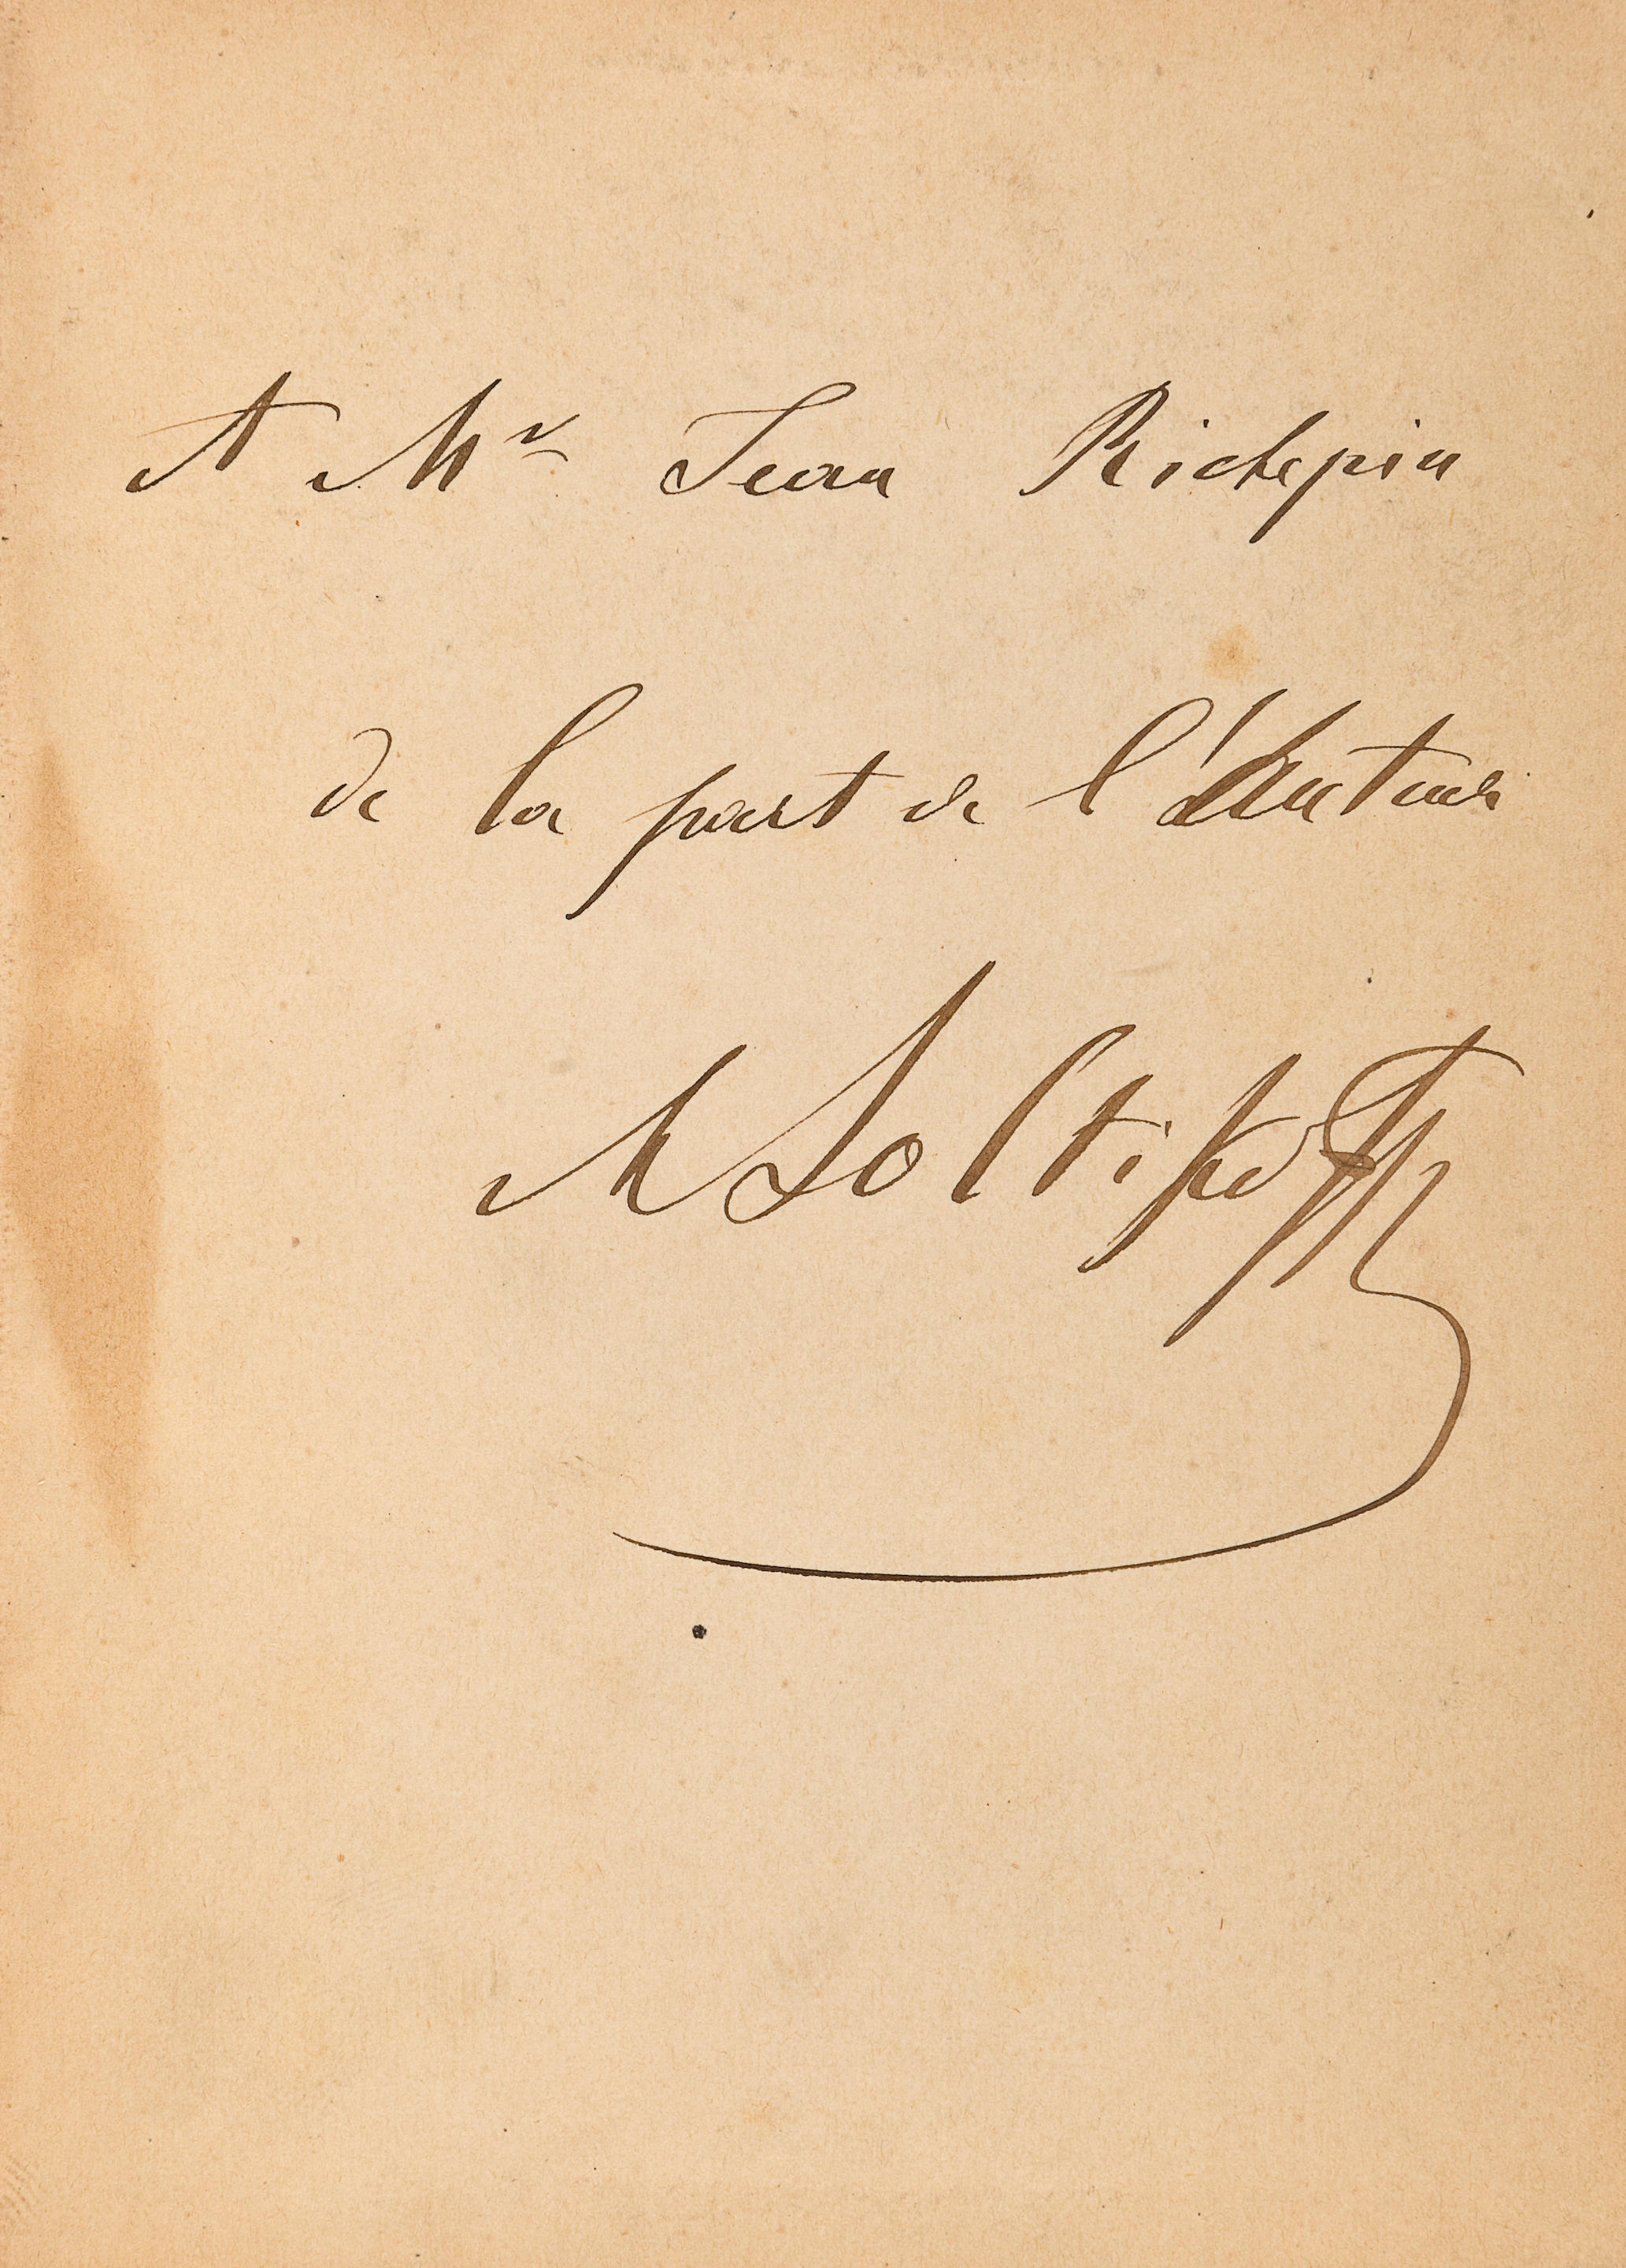 A Mr Jean Richepin
de la part de l'Auteur
A Soltikoff